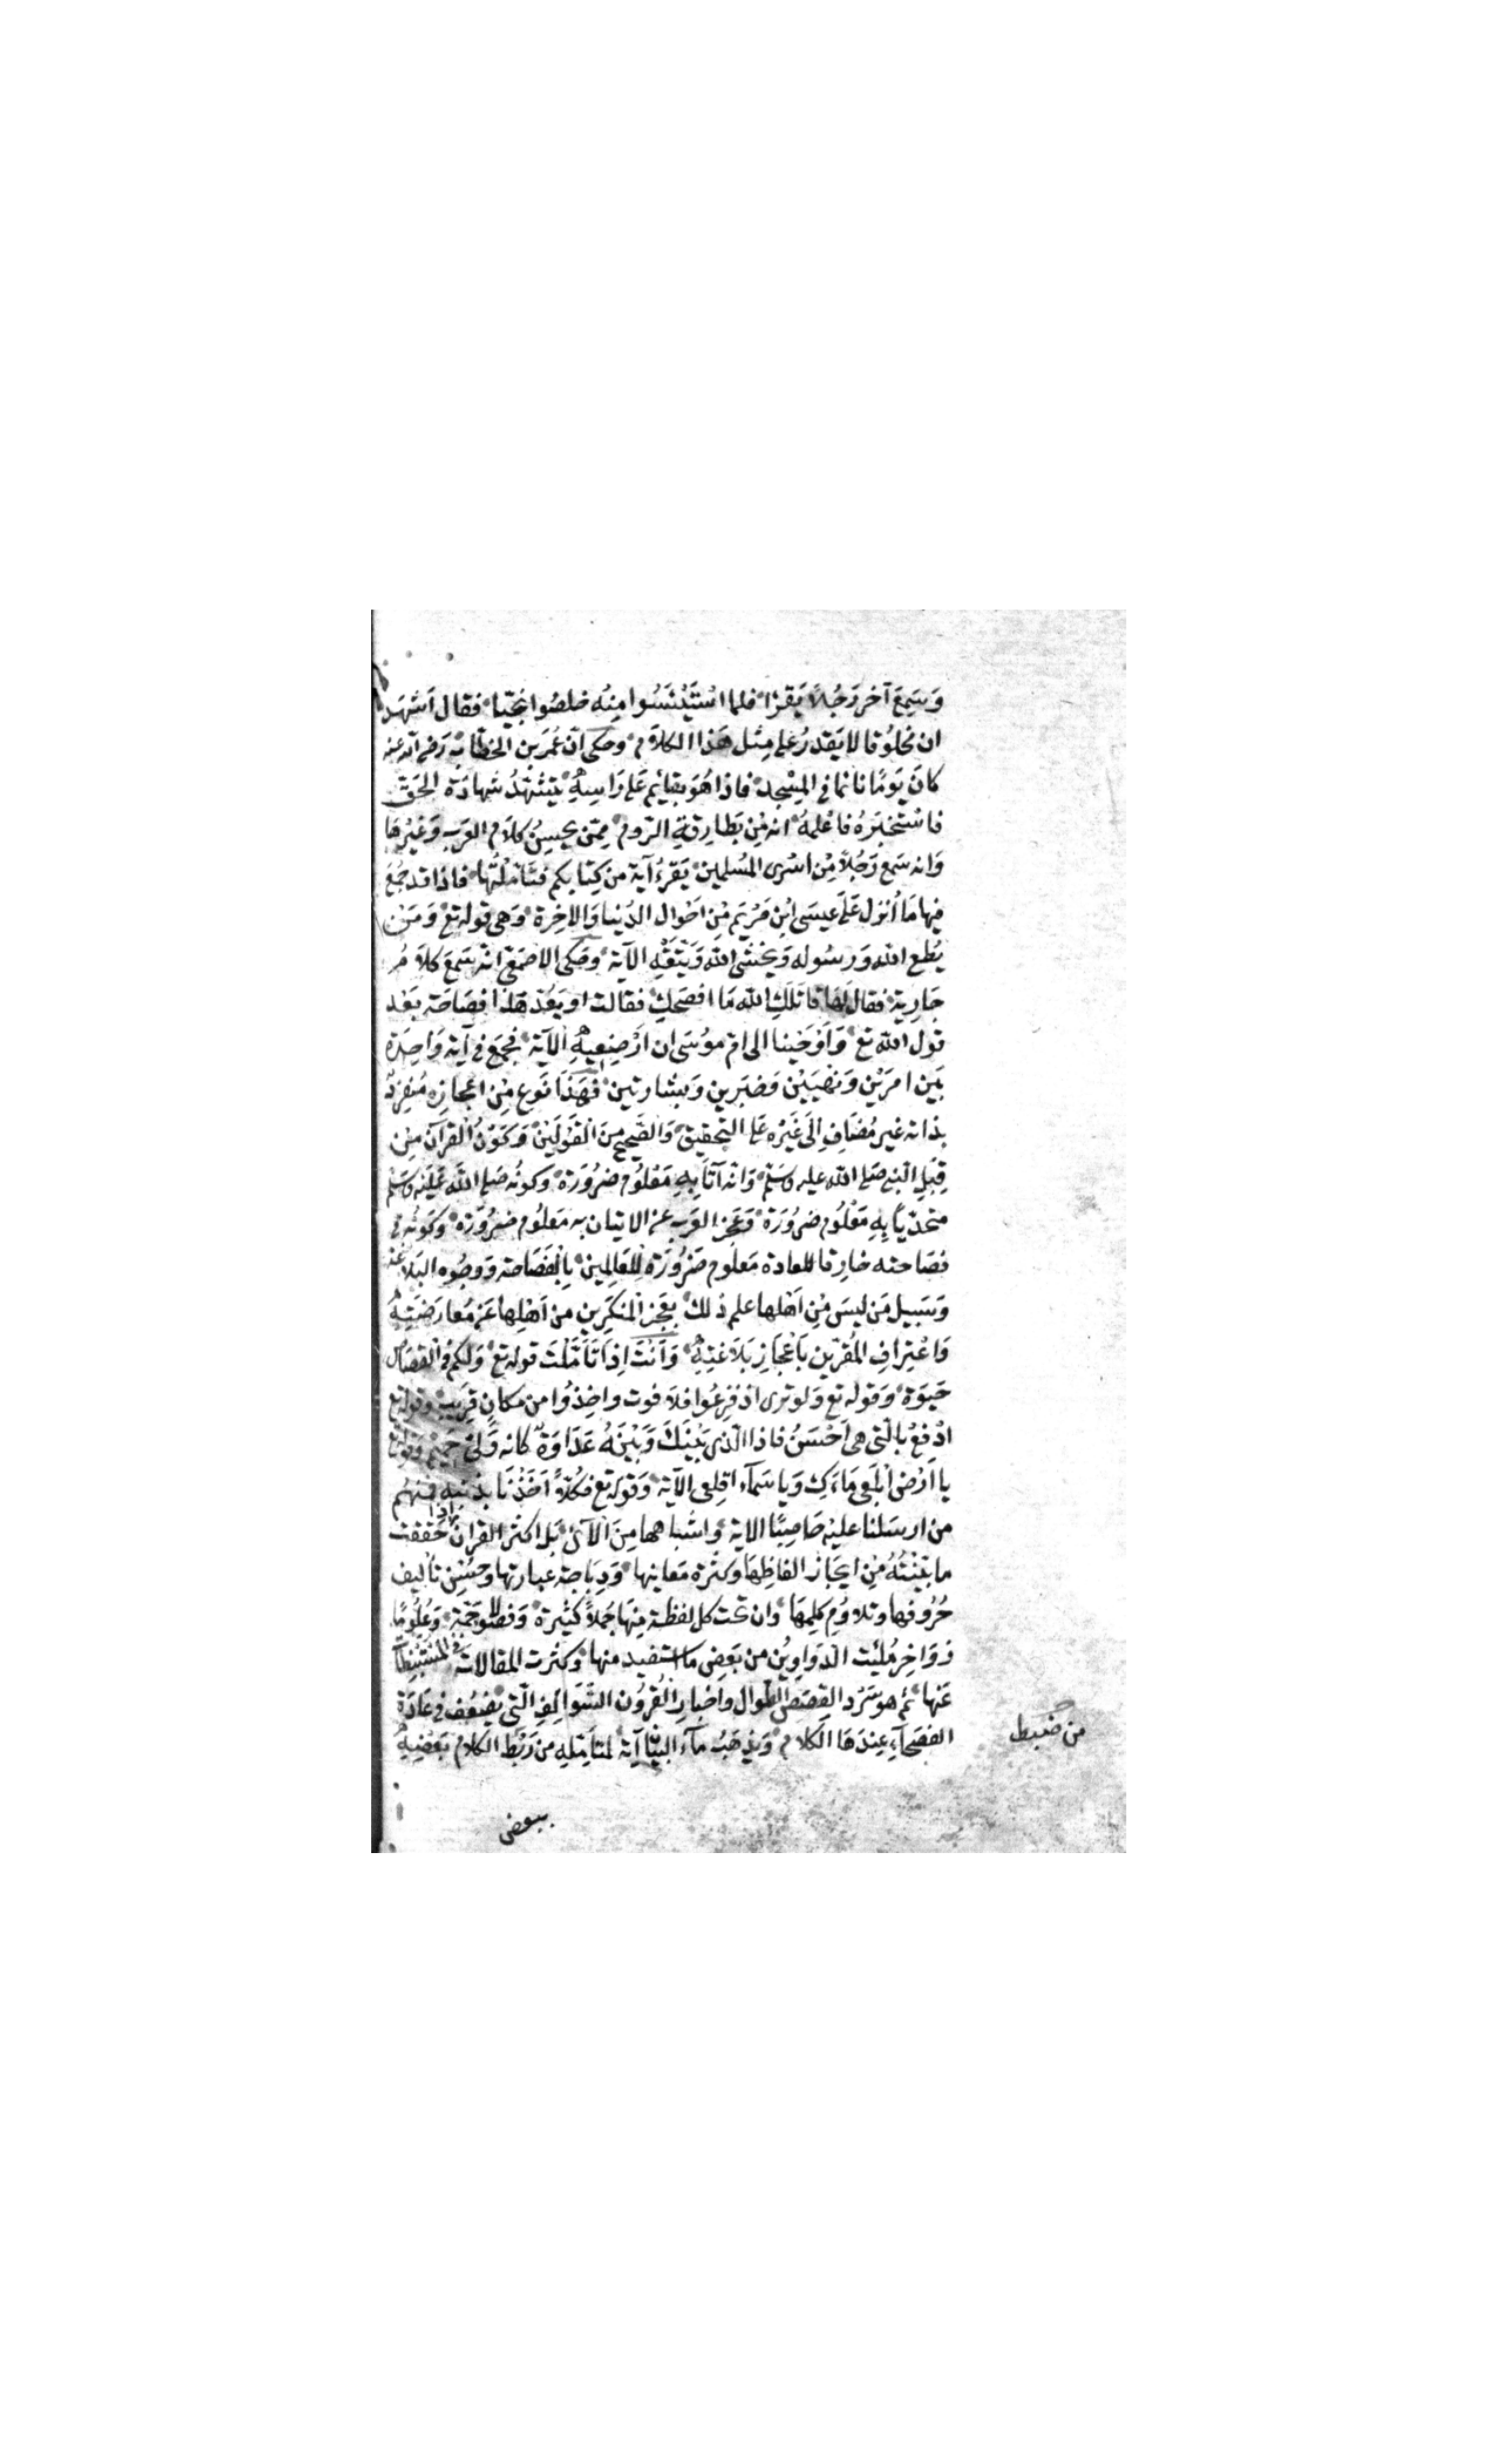 وَسَمِعَ آخر رَجُلاً يَقْرَا فلما اسْتَيْئَسُوا مِنْه خلصُوا نجَيّا فقال اَشْهَد
ان مخلُوقا لا يَقدرُ على مِثل هَذا الكلاَم وحكى اَن عُمَر بن الخطاب رَضى الله عنه
كانَ يَومًا نائما فى المسْجد فاذا هُوَ بقايِم عَلى رَاسِهِ يتشهّدُ شهادَة الحَقّ
فاسْتخبَرهُ فاعْلمهُ انه مِن بَطارِقةِ الرّوم مِمّن يحسِنُ كلاَم العَرب وَغيْرها
وَانه سَمع رَجُلاً مِن اسْرى المُسلمين يَقرءُ آية من كِتابكم فتَاملتُها فاذا قد جُمعَ
فيها مَا اُنزل عَلى عيسَى ابْن مَرْيَم مِن اَحْوال الدُنيا وَالاخِرة وَهى قوله تع وَمَن
يُطع الله وَرسُوله وَيخْشَى الله وَيتّقْهِ الآية وحَكى الاصْمَعى انه سَمعَ كلاَمُ
جَارية فقال لها قاتلكِ الله مَا افصَحكِ فقالت او يَعُدّ هَذا فصَاحَة بَعْد
قولَ الله تع وَاَوْحَيْنا الى ام مُوسَى ان اَرْضِعِيهِ الآية فجمَع فى آية وَاحِدَة
بَين امرَيْن وَنهْيَيْن وَخبَرين وَبشارتين فهَذا نَوع مِن اعْجازه مُنفردٌ
بذاته غير مُضَافٍ اِلى غَيْره عَلى التحقيق وَالصّحيح مِنَ القَوْلَيْن وَكوْنُ القُرآن مِن
قِبَلِ النبى صَلى الله عليه وسَلم وَانه اَتَا بِهِ مَعْلُوم ضرُورَة وكونُه صَلى الله عَليْه وسَلم
متحدّيًا بِهِ مَعْلُوم ضرُورَة وَعَجز العَرب عن الاتيان به مَعلُوم ضرُورَة وَكونُه فى
فصَاحته خارِقا للعادة مَعلوم ضَرُورَة لِلعَالِمين بِالفَصَاحة وَوجُوه البَلاغة
وَسَبيل مَن ليسَ مِن اَهْلها علم ذلك بعَجز المنكرين من اَهْلِها عَن مُعارضَتِهِ
وَاعْترافِ المُقرّين بِاعْجَازِ بَلاَغتِهِ وَاَنْتَ اِذا تَاَمّلتَ قوله تع وَلكم فى القصَاص
حَيوَة وَقوله تع وَلو ترى اذ فزِعُوا فلا فوت واخِذوا من مكانٍ قريب وقوله تع
ادْفعْ بالتى هى اَحْسَنُ فاذا الّذى بَيْنَكَ وَبَيْنَهُ عَدَاوَة كانه وَلىٌ حميم وقوله تع
يا اَرْضُ ابْلَعِى مَاءَكِ وَيا سَمَاء اقلِعى الآية وَقوله تع فكُلاّ اَخَذْنا بذنبه فمِنهُم
من ارسَلنا عليْه حَاصِبًا الاية وَاشْباهها مِنَ الآىْ بَل اكثر القران اذا حَققت
ما بَيّنتُهُ مِن ايجَاز الفاظِهَا وكثرة مَعانيها وَديباجة عبارتها وَحُسْنِ تأليف
حُرُوفها وتلاوُم كلِمِهَا وَان تحت كل لفظة مِنهَا جُملاً كثيرة وَفصُولاً جَمّة وَعُلومًا
زوَاخِر مُلئت الدّوَاوِيْن من بَعض ما استفيد منها وَكثرت المقالات فى المسْتنبطات
عَنها ثم هو سَرْد القِصَص الطوال واخبار القُرون السّوَالفِ الّتى يضعُف فى عَادَة
الفصَحَآءِ عِندَهَا الكلام وَيذهَبُ مآء البيَان آية لمتأمّلهِ من رَبط الكلام بَعْضِهِ
من ضبط
ببعض